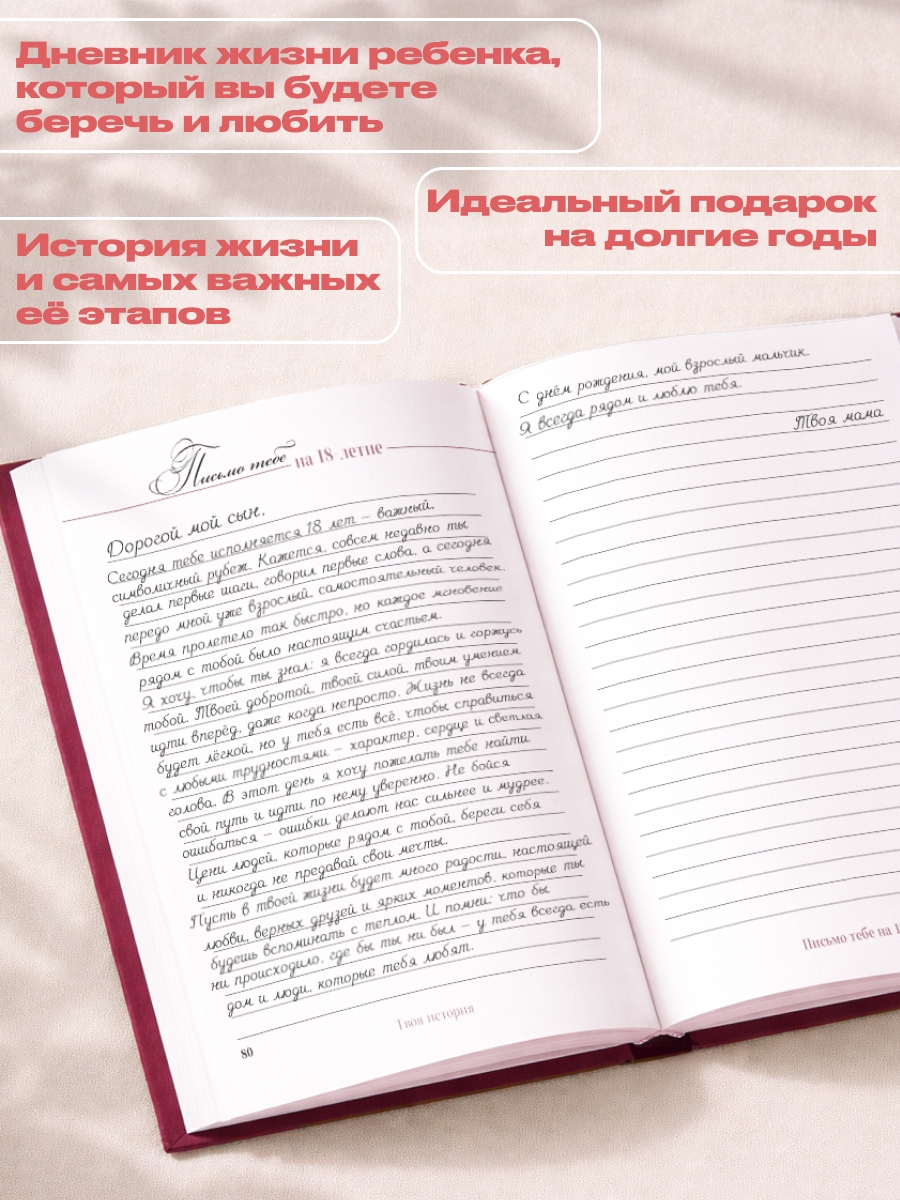 Дневник жизни ребенка,
который вы будете
беречь и любить
Идеальный подарок
на долгие годы
История жизни
и самых важных
её этапов
Письмо тебе на 18-летие
Дорогой мой сын,
Сегодня тебе исполняется 18 лет – важный,
символичный рубеж. Кажется, совсем недавно ты
делал первые шаги, говорил первые слова, а сегодня
передо мной уже взрослый, самостоятельный человек.
Время пролетело так быстро, но каждое мгновение
рядом с тобой было настоящим счастьем.
Я хочу, чтобы ты знал: я всегда гордилась и горжусь
тобой. Твоей добротой, твоей силой, твоим умением
идти вперёд, даже когда непросто. Жизнь не всегда
будет лёгкой, но у тебя есть всё, чтобы справиться
с любыми трудностями – характер, сердце и светлая
голова. В этот день я хочу пожелать тебе найти
свой путь и идти по нему уверенно. Не бойся
ошибаться – ошибки делают нас сильнее и мудрее.
Цени людей, которые рядом с тобой, береги себя
и никогда не предавай свои мечты.
Пусть в твоей жизни будет много радости, настоящей
любви, верных друзей и ярких моментов, которые ты
будешь вспоминать с теплом. И помни: что бы
ни происходило, где бы ты ни был – у тебя всегда есть
дом и люди, которые тебя любят.
Твоя история
80
С днём рождения, мой взрослый мальчик.
Я всегда рядом и люблю тебя.
Твоя мама
Письмо тебе на 1